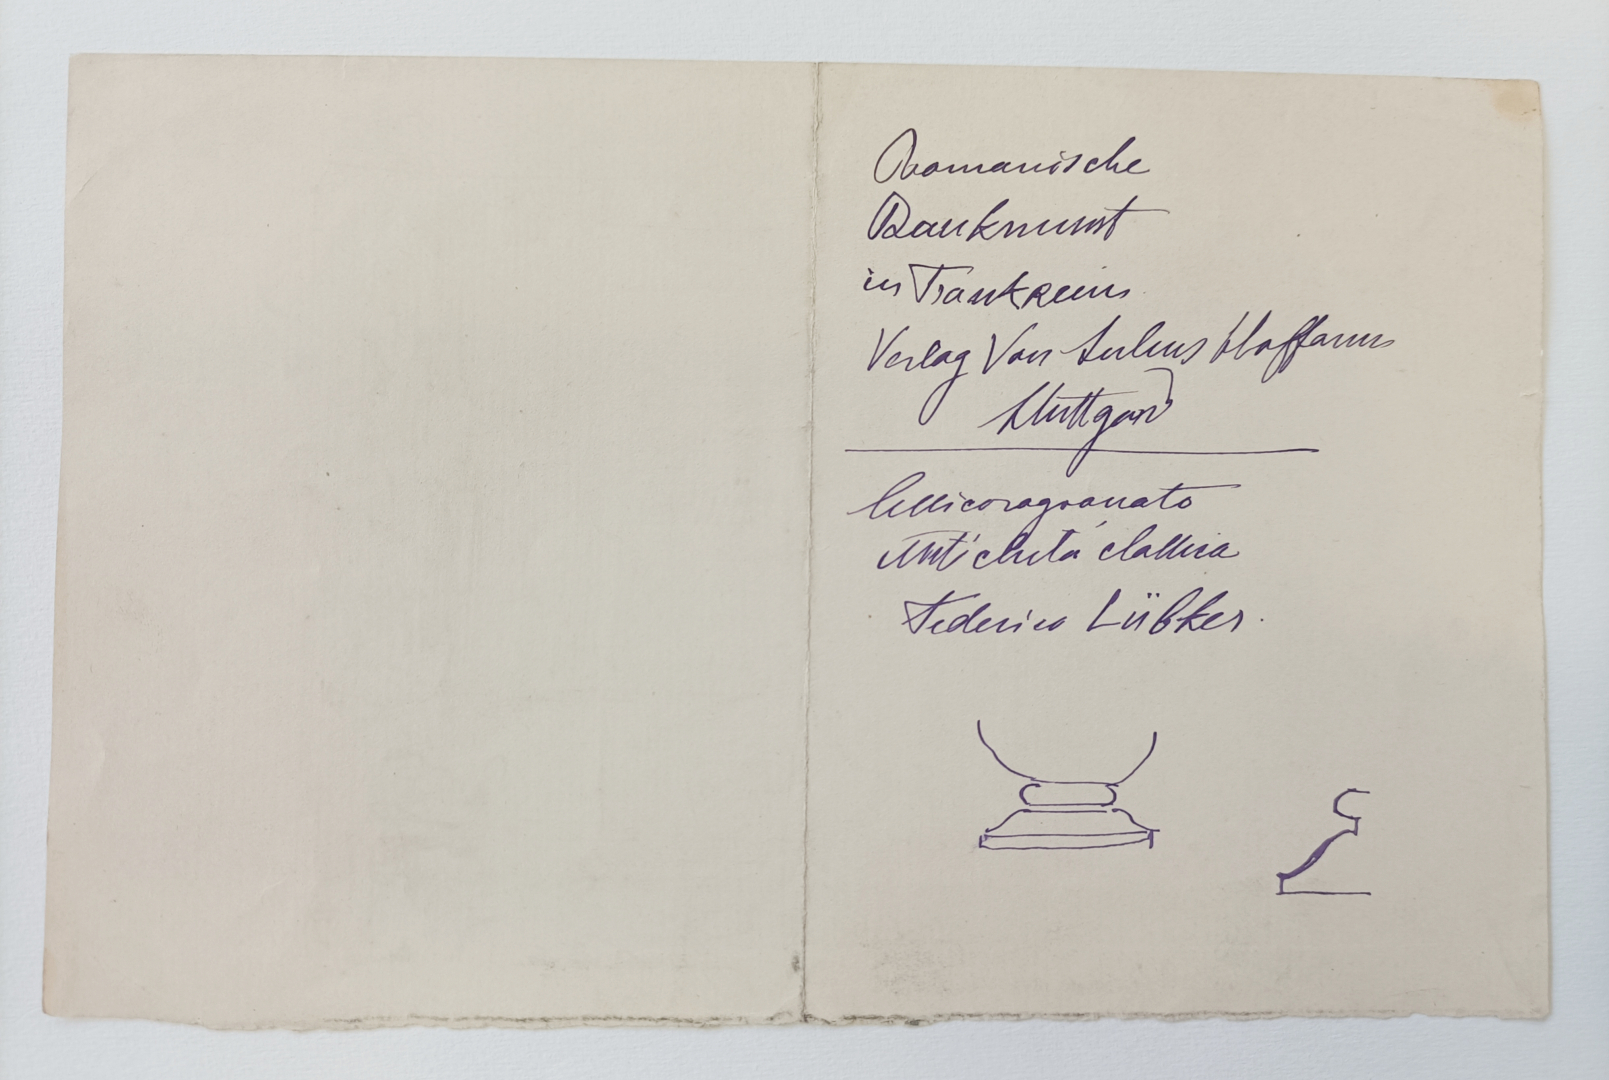 Romanische
Baukunst
in Frankreich
Verlag Von Julius Hoffann
Stuttgard
Antichità classica
Federico Lübker.